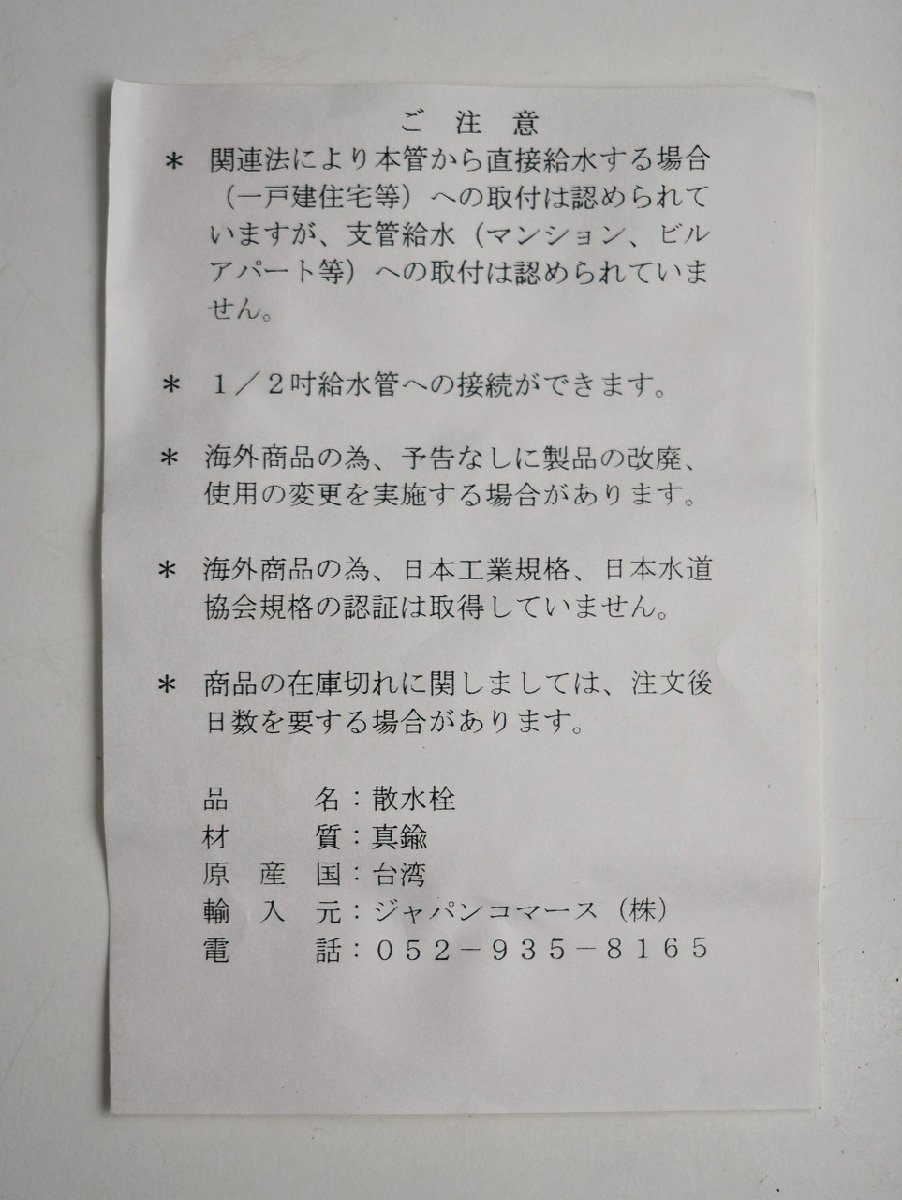 ご 注 意
＊ 関連法により本管から直接給水する場合
（一戸建住宅等）への取付は認められて
いますが、支管給水（マンション、ビル
アパート等）への取付は認められていま
せん。
＊ １／２吋給水管への接続ができます。
＊ 海外商品の為、予告なしに製品の改廃、
使用の変更を実施する場合があります。
＊ 海外商品の為、日本工業規格、日本水道
協会規格の認証は取得していません。
＊ 商品の在庫切れに関しましては、注文後
日数を要する場合があります。
品 名：散水栓
材 質：真鍮
原 産 国：台湾
輸 入 元：ジャパンコマース（株）
電 話：０５２－９３５－８１６５